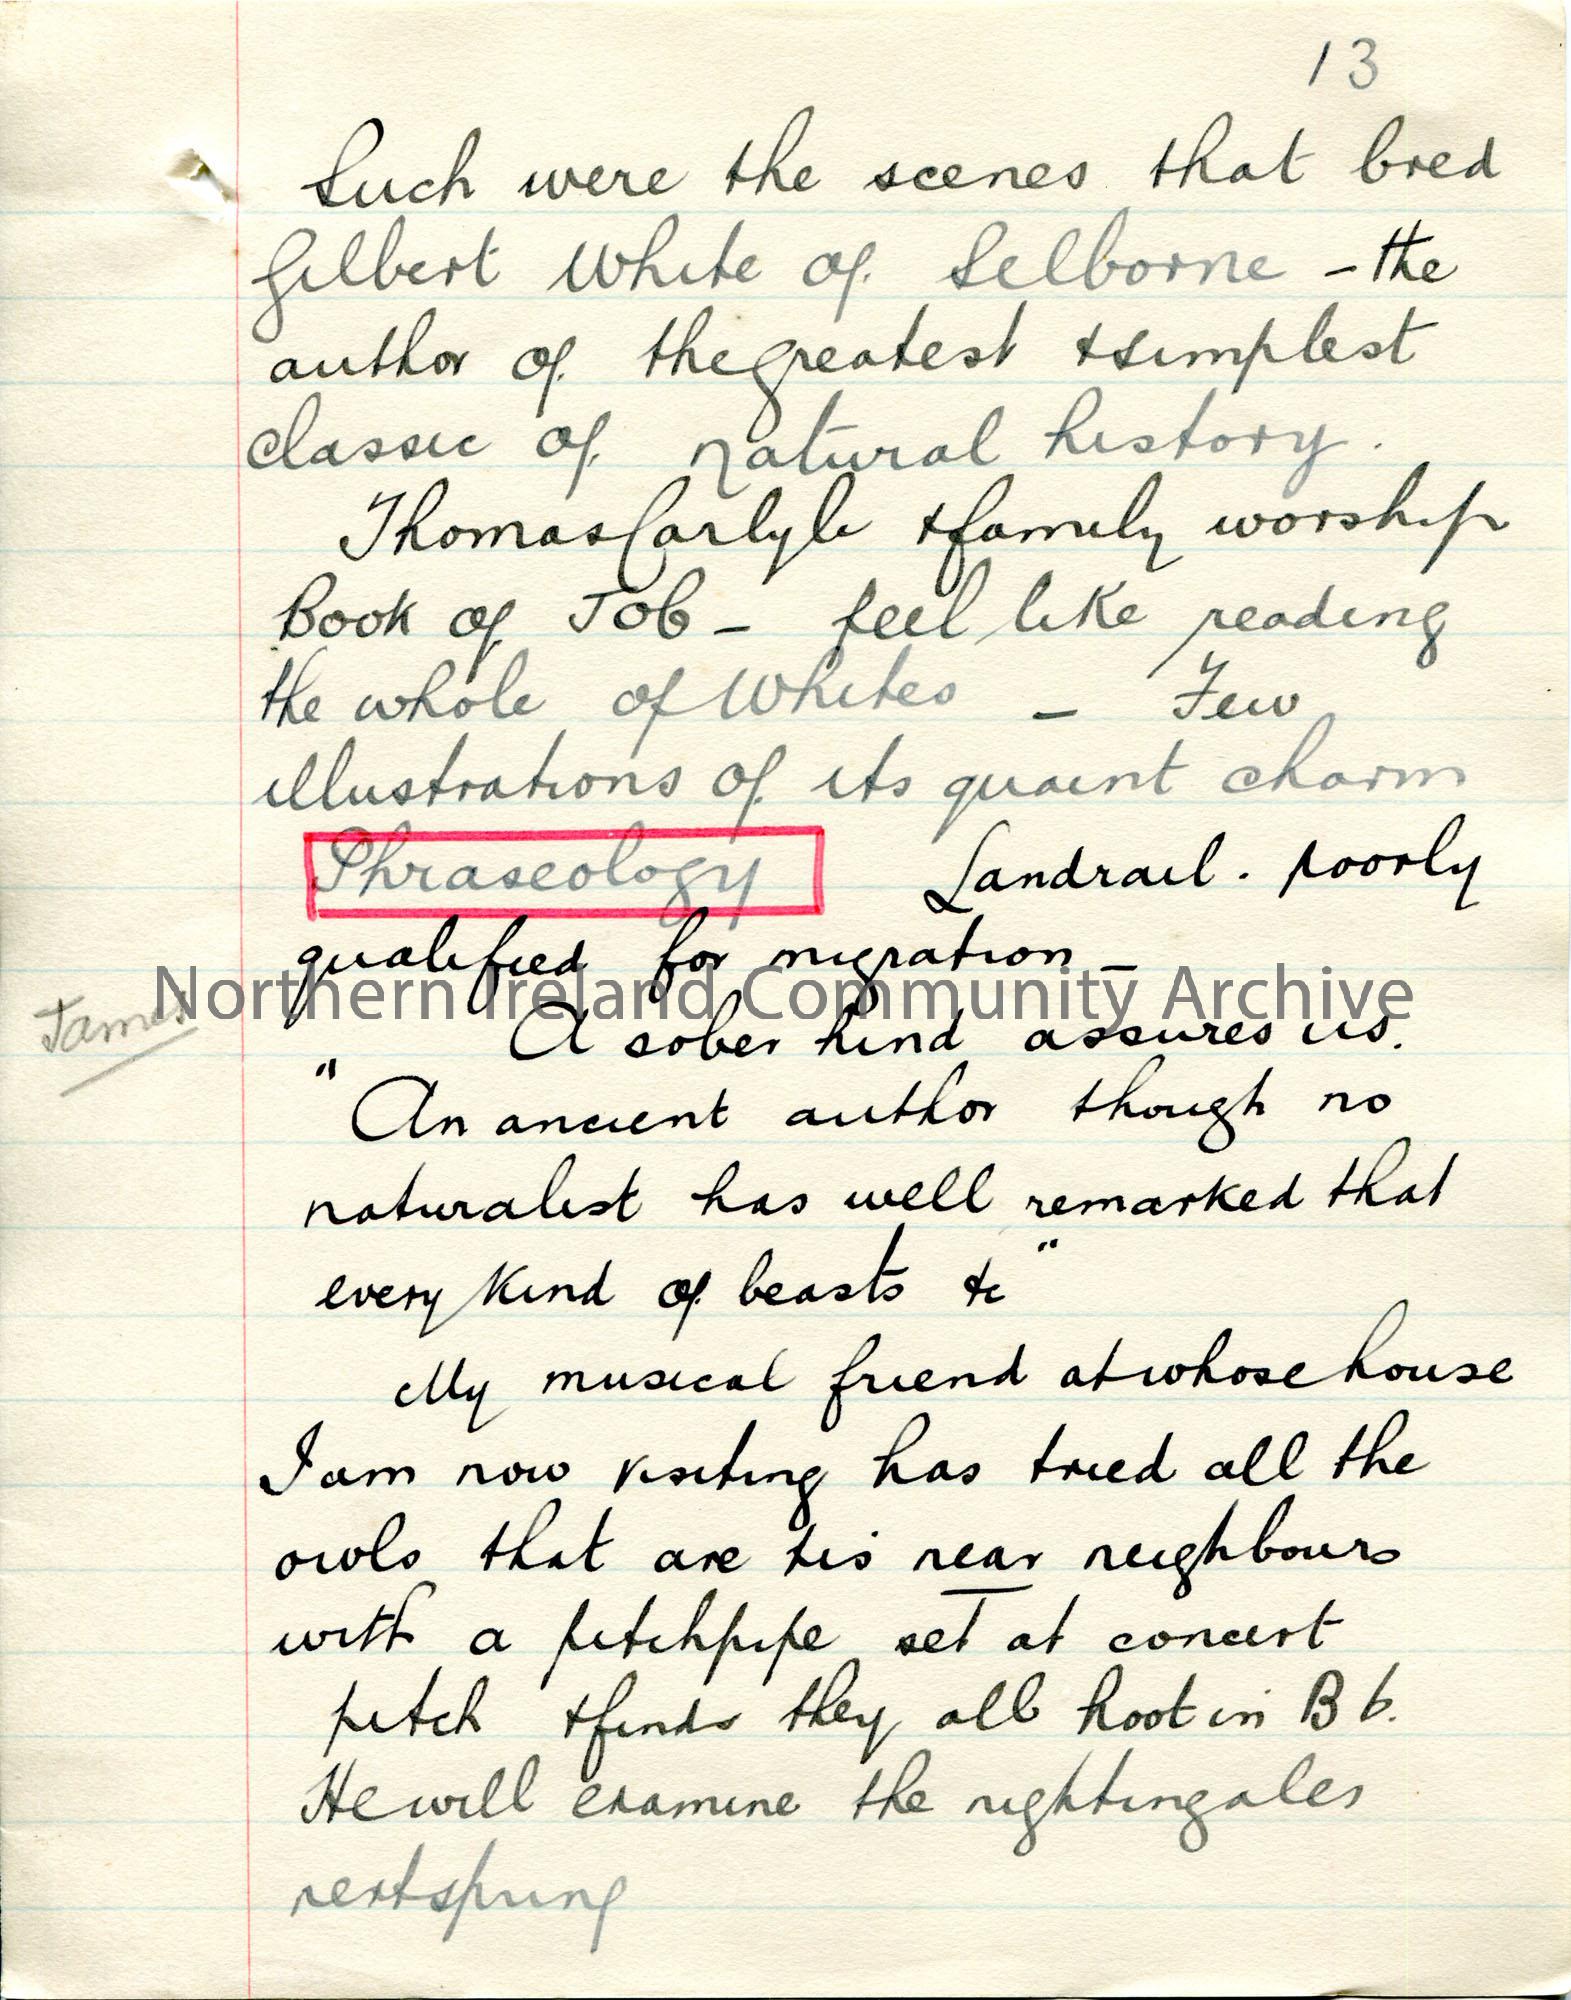 13
Such were the scenes that bred
Gilbert White of Selborne – the
author of the greatest & simplest
classic of natural history.
Thomas Carlyle & family worship
Book of Job – feel like reading
the whole of Whites – Few
illustrations of its quaint charm
Phraseology Landrail. poorly
qualified for migration –
Northern Ireland Community Archive
James
A sober hind assures us.
"An ancient author though no
naturalist has well remarked that
every kind of beasts &c"
My musical friend at whose house
I am now visiting has tried all the
owls that are his near neighbours
with a pitchpipe set at concert
pitch & finds they all hoot in B b.
He will examine the nightingales
next spring